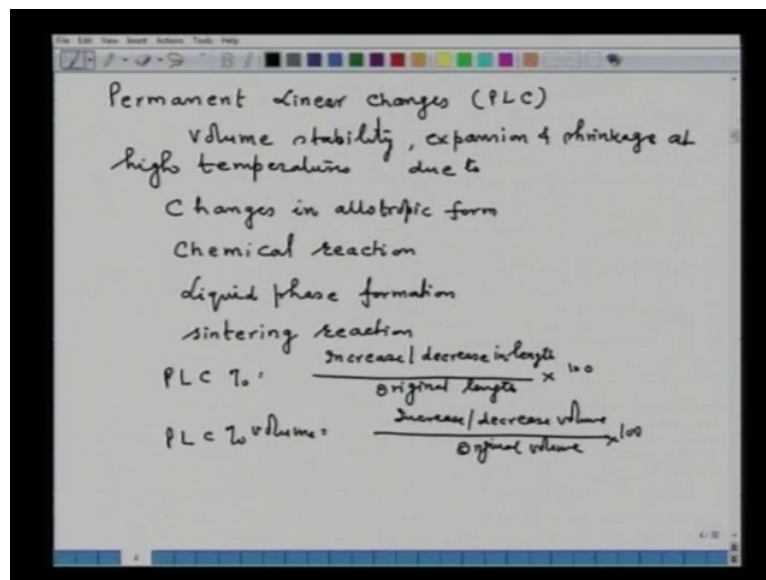 File Edit View Insert Actions Tools Help
Permanent Linear changes (PLC)
Volume stability, expansion & shrinkage at
high temperatures due to
Changes in allotropic form
Chemical reaction
Liquid phase formation
sintering reaction
PLC %= Increase/decrease in length
Original length × 100
PLC % volume= Increase/decrease volume
Original volume ×100
4/30
4